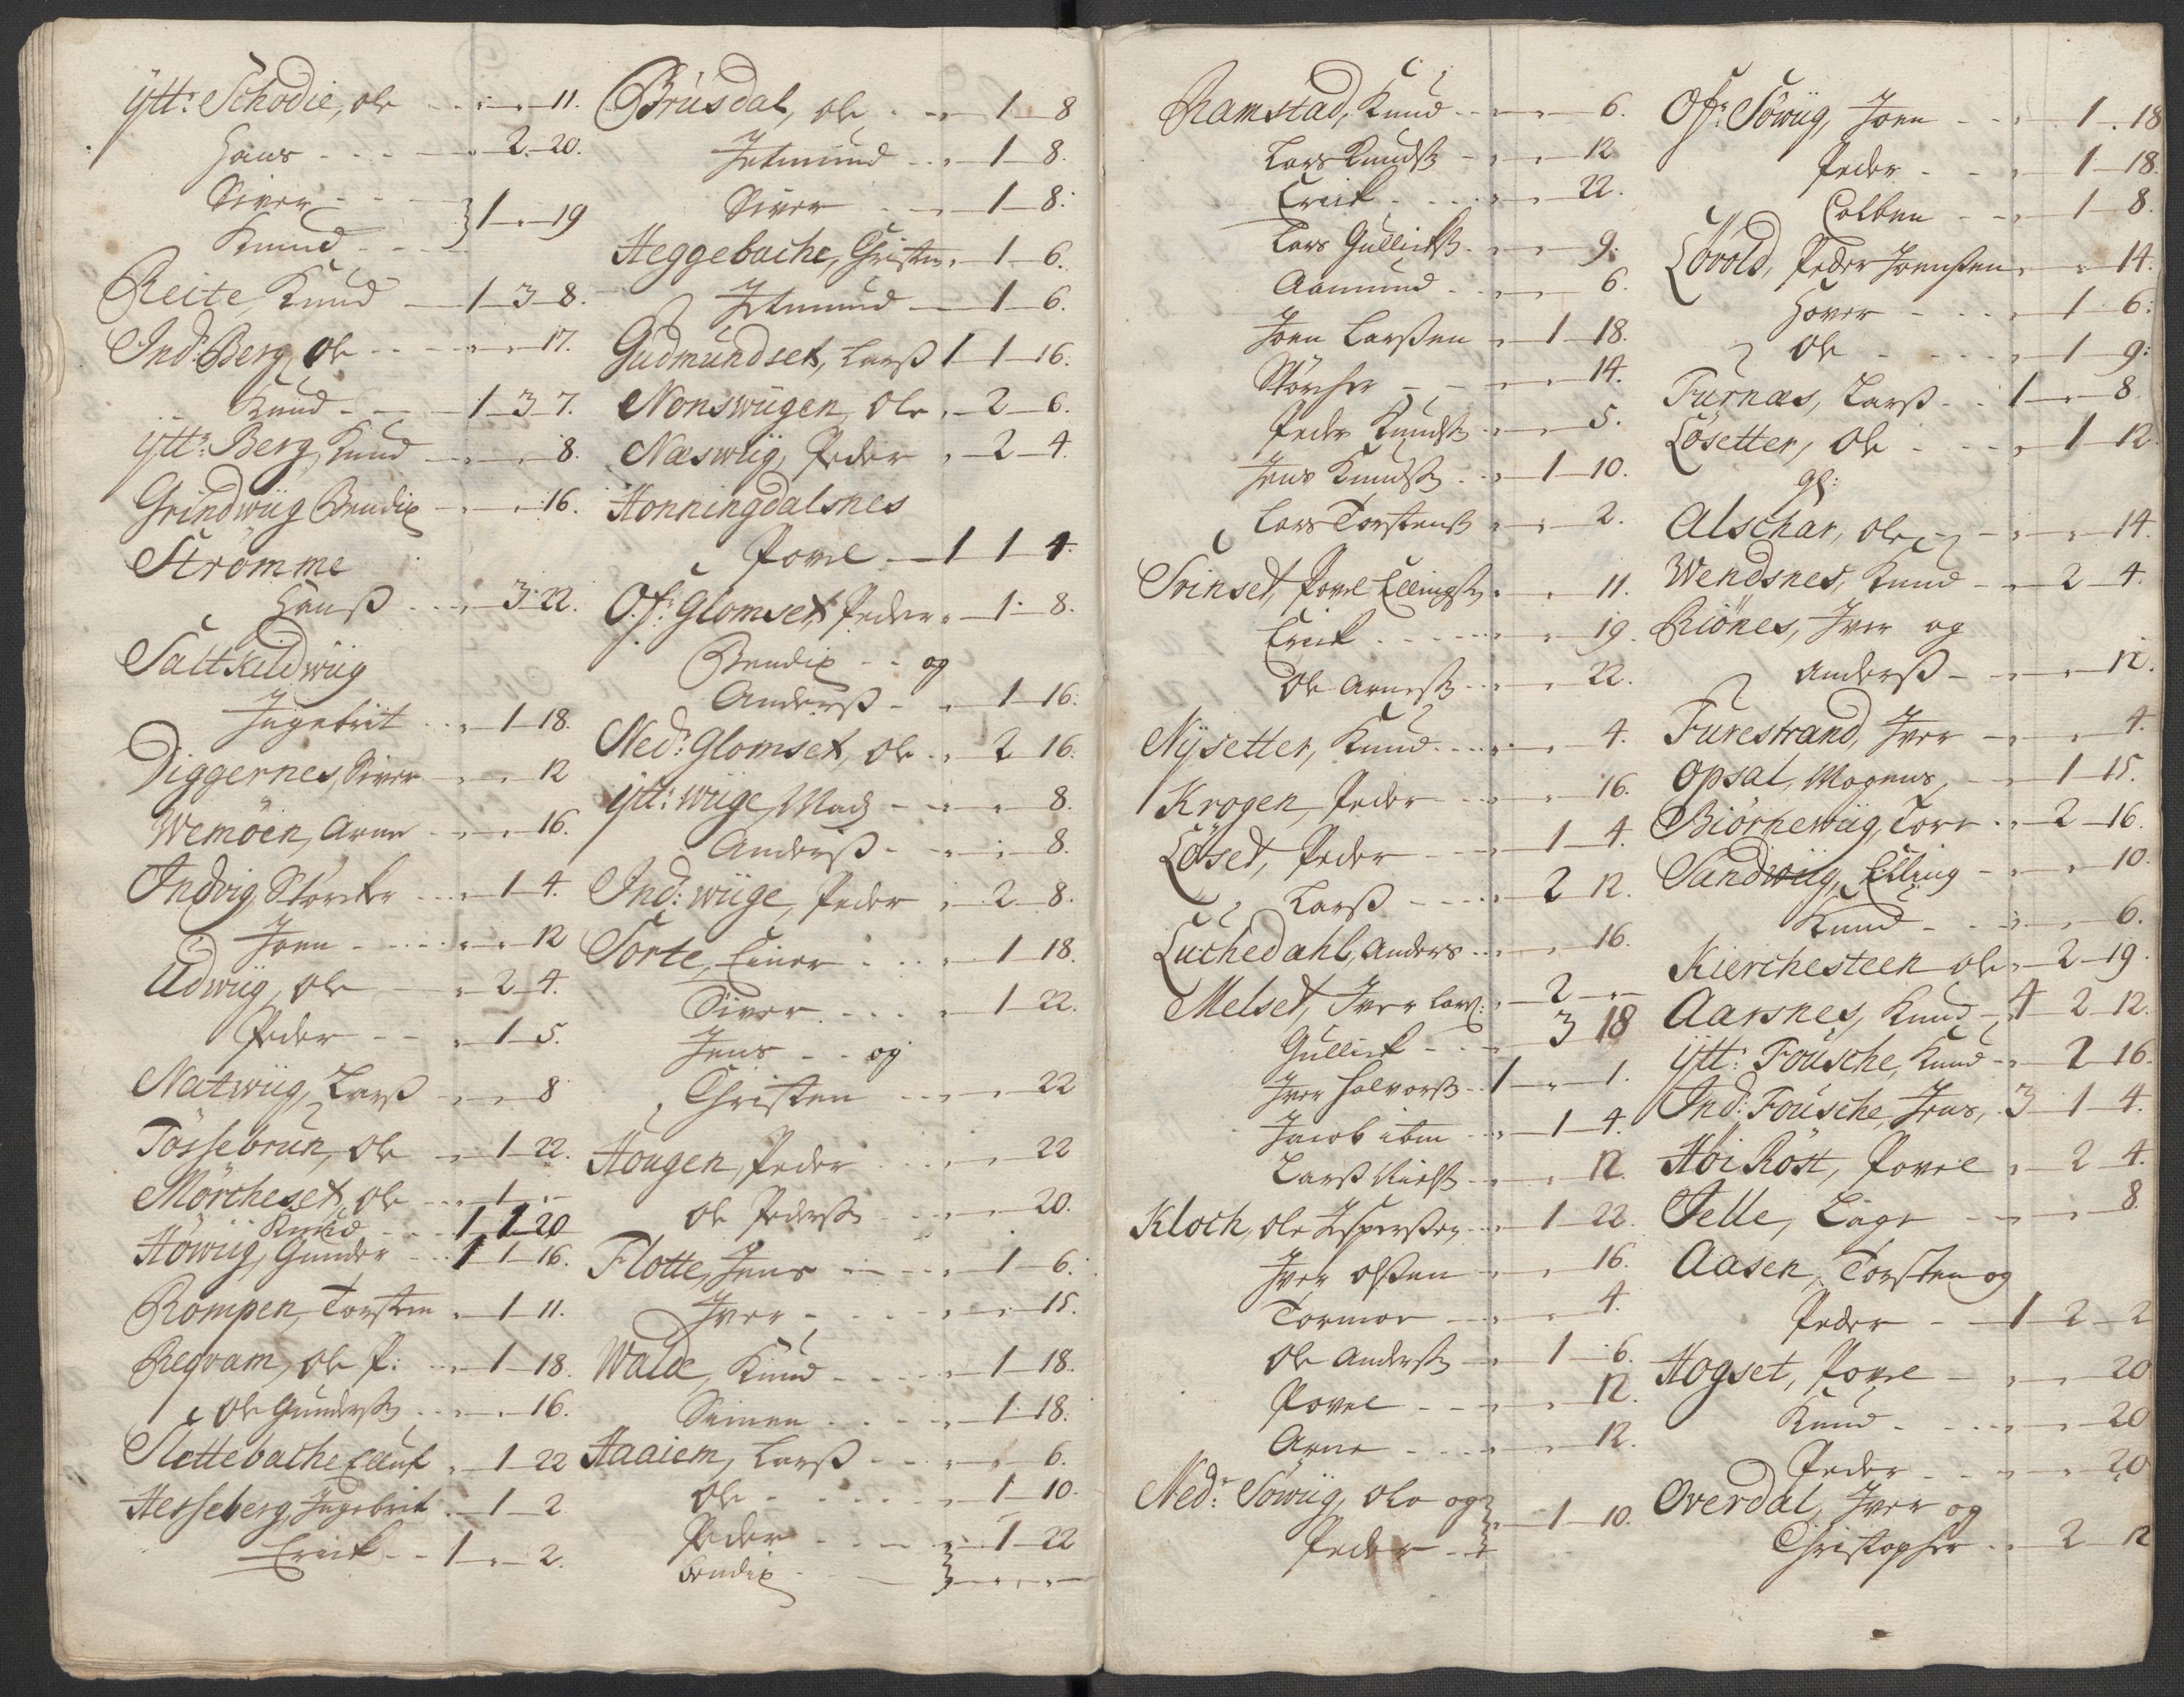 Ÿtt: Schodie, ole - - - „ - „ - 11.
Hans - - - - „ - 2 - 20.
Siver - - -
Knud - - } 1 - „ - 19
Reite, Knud - 1 - 3 - 8.
Ind: Berg, Ole - - - „ - „ - 17.
Knud - - - 1 - 3 - 7.
Ÿtt: Berg, Knud - „ - „ - 8.
Grindwiig Bendix - „ - „ - 16.
Strömme
Hanß - - „ - 3 - 22.
Saltkieldwiig
Ingebrit - - „ - 1 - 18.
Diggernes, Siver - „ - „ - 12
Wemöen, Arne - „ - „ - 16.
Indvig, Storcker - - „ - 1 - 4.
Joen - - - - „ - „ - 12
Udwiig, ole - - „ - 2 - 4.
Peder - - „ - 1 - 5.
Natwiig, Larß - „ - „ - 8
Tössebrun, Ole - „ - 1 - 22.
Mörcheset, ole - - „ - 1 - „ -
Knud - - 1 - 1 - 20
Höwiig, Gunder - - 1 - 1 - 16.
Rompen, Torsten - „ - 1 - 11.
Reqvam, Ole P: - „ - 1 - 18.
ole Gunderß - „ - „ - 16.
Slettebache Elluf „ - 1 - 22
Hesseberg, Ingebrit - „ - 1 - 2
Erick - - 1 - „ - 2.
Brüsdal, ole - - „ - 1 - 8
Jetmund - - „ - 1 - 8.
Siver - - „ - 1 - 8.
Heggebache, Christen „ - 1 - 6.
Jetmund - „ - 1 - 6.
Gudmundset, Larß 1 - 1 - 16.
Nonswiigen, Ole „ - 2 - 6.
Næswiig, Peder „ - 2 - 4.
Honningdalsnes
Povel - 1 1 4.
Ofr: Glomset, Peder „ - 1 - 8.
Bendix - - og
Anderß - „ - 1 - 16.
Ned: Glomset, ole - „ 2 - 16.
Ÿtt: wiige, Mads - „ - „ - 8.
Anderß - „ - „ - 8.
Ind: wiige, Peder „ - 2 - 8.
Sorte, Einer - - „ - 1 - 18.
Siver - - - „ - 1 - 22.
Jens - - og
Christen - - „ - „ - 22
Hougen, Peder - - „ - „ - 22
Ole Pederß - - „ - „ - 20.
Flotte, Jens - - „ - 1 - 6.
Iver - - - „ - „ - 15.
Walde, Knud - - - „ - 1 - 18.
Simen - - - „ - 1 - 18.
Haaiem, Larß - - „ - „ - 6.
Ole - - - - „ - 1 - 10.
Peder - - - „ - 1 - 22
Bendix - - } „ - „ - „ -
Ramstad, Knud - - „ - „ - 6.
Lars Knudß - „ - „ - 12
Erick - - - „ - „ - 22.
Lars Gullickß - „ - „ - 9.
Aamund - - „ - „ - 6.
Joen Larßen „ - 1 - 18.
Störcher - - „ - „ - 14.
Peder Knudß - „ - „ - 5.
Jens Knudß - „ - 1 - 10.
Lars Torstenß „ - „ - 2.
Svinset, Povel Ellingß „ - „ 11.
Erick - - - - „ - „ - 19.
Ole Arneß - - „ - „ - 22.
Nÿsetter, Knud - - „ - „ - 4.
Krogen, Peder - - „ - „ - 16.
Löset, Peder - - „ - 1 - 4.
Larß - - - „ - 2 - 12.
Luchedahl, Anders - - „ - „ - 16.
Melset, Iver Lars: - „ - 2 - „ -
Gullick - - „ - 3 18
Iver Halvorß - 1 - „ - 1.
Jacob ibm - „ - 1 - 4.
Larß Nielß - „ - „ - 12
Kloch, Ole Jesperßen - „ - 1 - 22.
Iver olßen - „ - „ - 16.
Tormoe - - „ - „ - 4.
Ole Anderß - „ - 1 - 6.
Povel - - - „ - „ - 12.
Arne - - - „ - „ - 12.
Ned: Söwiig, Ole og
Peder - } „ - 1 - 10.
Ofr: Söwiig, Joen - - „ - 1 - 18
Peder - - „ - 1 - 18.
Colben - - „ - 1 - 8.
Lövold, Peder Joenßen „ - „ - 14.
Haver - - - „ - 1 - 6:
Ole - - - „ - 1 - 9:
Furnæs, Larß - - 1 - „ - 8
Lösetter, Ole - - - „ - 1 - 12
Alschar, ole - - „ - „ - 14.
Wendsnes, Knud - „ - 2 - 4.
Riönes, Iver og
Anderß - „ - „ - 12.
Furestrand, Iver - „ - „ - 4.
Opsal, Mogens, - „ - 1 - 15.
Biörnewiig, Tore - „ - 2 - 16.
Sandwiig, Elling - „ - „ - 10.
Knud - - „ - „ - 6.
Kierchesteen ole „ - 2 - 19.
Aarsnes, Knud - 4 - 2 - 12.
Ÿtt: Fousche, Knud - „ - 2 - 16.
Ind: Fousche, Jens, 3 - 1 - 4.
Höi Röst, Povel „ - 2 - 4.
Jelle, Lage - „ - „ - 8.
Aasen, Torsten og
Peder - - 1 - 2 - 2
Hogset, Povel - - „ - „ - 20
Knud - - - „ - „ - 20
Peder - - - „ - „ - 20
Overdal, Iver og
Christopher - „ - 2 - 12